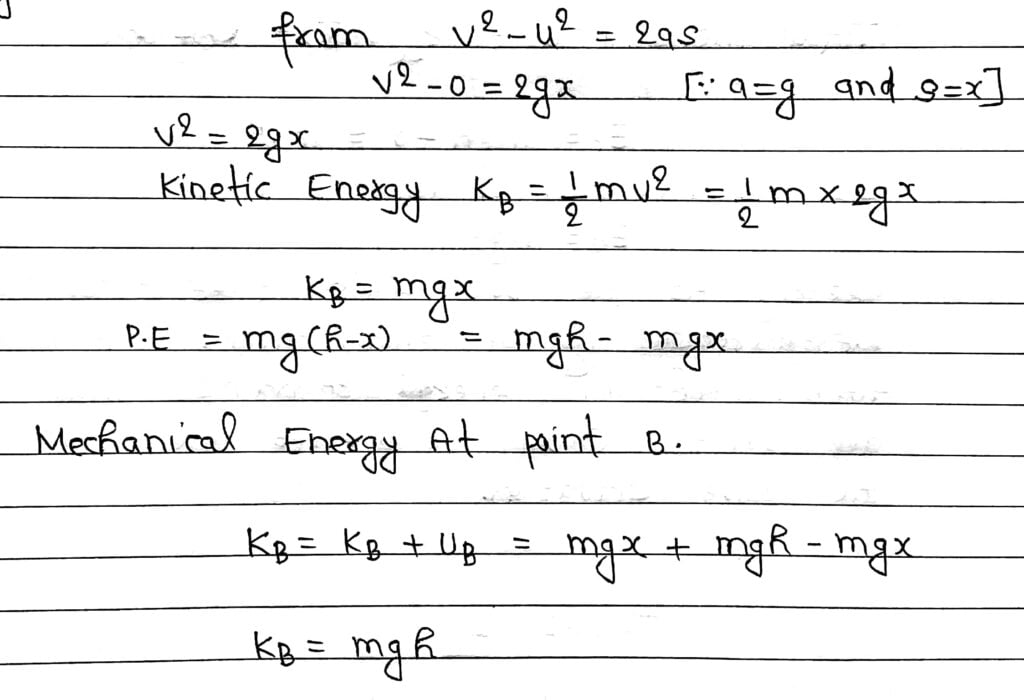 from v² - u² = 2as
v² - 0 = 2gx [∵ a=g and s=x]
v² = 2gx
Kinetic Energy K_B = 1/2 mv² = 1/2 m × 2gx
K_B = mgx
P.E = mg(h-x) = mgh - mgx
Mechanical Energy At point B.
K_B = K_B + U_B = mgx + mgh - mgx
K_B = mgh